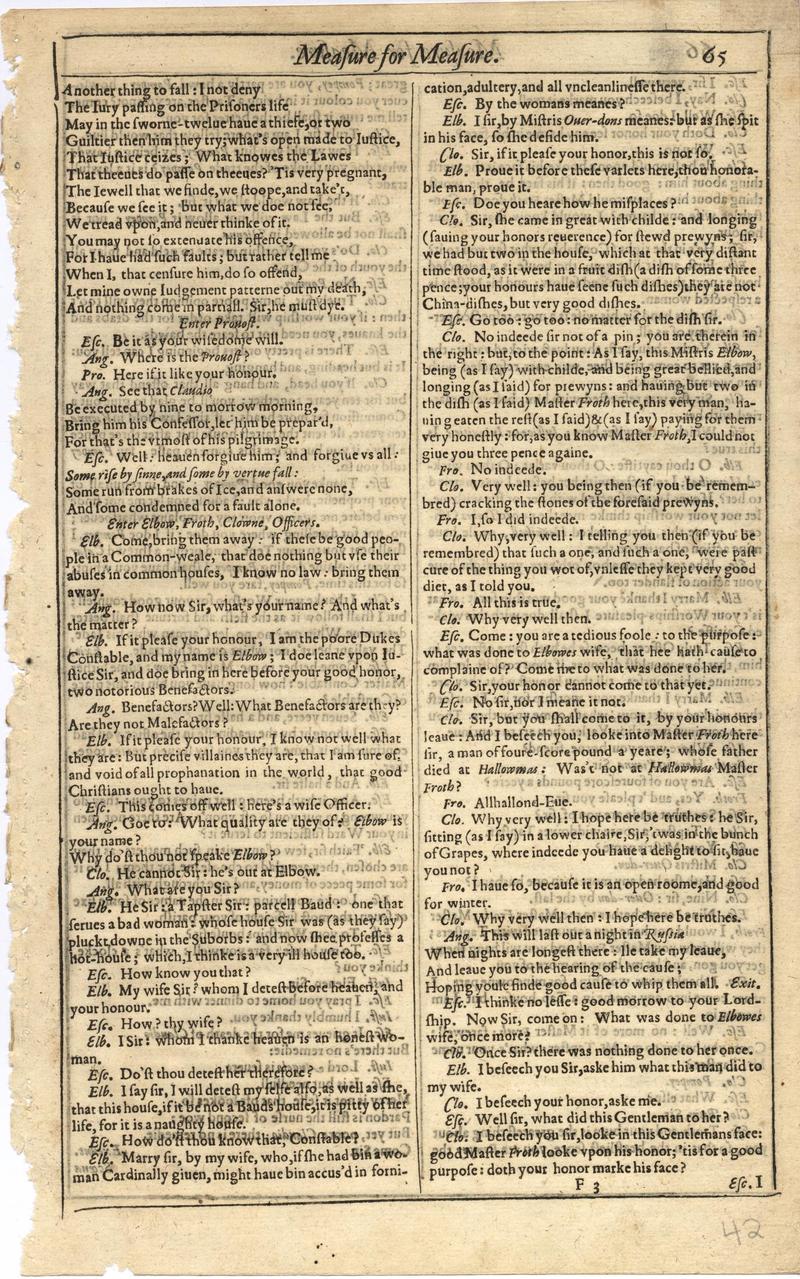 Meaſure for Meaſure. 65
Another thing to fall : I not deny
The Iury paſſing on the Priſoners life
May in the ſworne-twelue haue a thiefe, or two
Guiltier then him they try; what's open made to Iuſtice,
That Iuſtice ceizes ; What knowes the Lawes
That theeues do paſſe on theeues? 'Tis very pregnant,
The Iewell that we finde, we ſtoope, and take't,
Becauſe we ſee it ; but what we doe not ſee,
We tread vpon, and neuer thinke of it.
You may not ſo extenuate his offence,
For I haue had ſuch faults ; but rather tell me
When I, that cenſure him, do ſo offend,
Let mine owne Iudgement patterne out my death,
And nothing come in partiall. Sir, he muſt dye.
Enter Prouoſt.
Eſc. Be it as your wiſedome will.
Ang. Where is the Prouoſt ?
Pro. Here if it like your honour.
Ang. See that Claudio
Be executed by nine to morrow morning,
Bring him his Confeſſor, let him be prepar'd,
For that's the vtmoſt of his pilgrimage.
Eſc. Well : heauen forgiue him ; and forgiue vs all :
Some riſe by ſinne, and ſome by vertue fall :
Some run from brakes of Ice, and anſwere none,
And ſome condemned for a fault alone.
Enter Elbow, Froth, Clowne, Officers.
Elb. Come, bring them away : if theſe be good peo-
ple in a Common-weale, that doe nothing but vſe their
abuſes in common houſes, I know no law : bring them
away.
Ang. How now Sir, what's your name ? And what's
the matter ?
Elb. If it pleaſe your honour, I am the poore Dukes
Conſtable, and my name is Elbow ; I doe leane vpon Iu-
ſtice Sir, and doe bring in here before your good honor,
two notorious Benefactors.
Ang. Benefactors? Well : What Benefactors are they?
Are they not Malefactors ?
Elb. If it pleaſe your honour, I know not well what
they are : But preciſe villaines they are, that I am ſure of,
and void of all prophanation in the world, that good
Chriſtians ought to haue.
Eſc. This comes off well : here's a wiſe Officer.
Ang. Goe to : What quality are they of ? Elbow is
your name ?
Why do'ſt thou not ſpeake Elbow ?
Clo. He cannot Sir : he's out at Elbow.
Ang. What are you Sir ?
Elb. He Sir : a Tapſter Sir : parcell Baud : one that
ſerues a bad woman : whoſe houſe Sir was (as they ſay)
pluckt downe in the Suborbs : and now ſhee profeſſes a
hot-houſe ; which, I thinke is a very ill houſe too.
Eſc. How know you that ?
Elb. My wife Sir ? whom I deteſt before heauen, and
your honour.
Eſc. How ? thy wife ?
Elb. I Sir : whom I thanke heauen is an honeſt wo-
man.
Eſc. Do'ſt thou deteſt her therefore ?
Elb. I ſay ſir, I will deteſt my ſelfe alſo, as well as ſhe,
that this houſe, if it be not a Bauds houſe, it is pitty of her
life, for it is a naughty houſe.
Eſc. How do'ſt thou know that, Conſtable ?
Elb. Marry ſir, by my wife, who, if ſhe had bin a wo-
man Cardinally giuen, might haue bin accus'd in forni-
cation, adultery, and all vncleanlineſſe there.
Eſc. By the womans meanes ?
Elb. I ſir, by Miſtris Ouer-dons meanes : but as ſhe ſpit
in his face, ſo ſhe defide him.
Clo. Sir, if it pleaſe your honor, this is not ſo.
Elb. Proue it before theſe varlets here, thou honora-
ble man, proue it.
Eſc. Doe you heare how he miſplaces ?
Clo. Sir, ſhe came in great with childe : and longing
(ſauing your honors reuerence) for ſtewd prewyns ; ſir,
we had but two in the houſe, which at that very diſtant
time ſtood, as it were in a fruit diſh (a diſh of ſome three
pence ; your honours haue ſeene ſuch diſhes) they are not
China-diſhes, but very good diſhes.
Eſc. Go too : go too : no matter for the diſh ſir.
Clo. No indeede ſir not of a pin ; you are therein in
the right : but, to the point : As I ſay, this Miſtris Elbow,
being (as I ſay) with childe, and being great bellied, and
longing (as I ſaid) for prewyns : and hauing but two in
the diſh (as I ſaid) Maſter Froth here, this very man, ha-
uing eaten the reſt (as I ſaid) & (as I ſay) paying for them
very honeſtly : for, as you know Maſter Froth, I could not
giue you three pence againe.
Fro. No indeede.
Clo. Very well : you being then (if you be remem-
bred) cracking the ſtones of the foreſaid prewyns.
Fro. I, ſo I did indeede.
Clo. Why, very well : I telling you then (if you be
remembred) that ſuch a one, and ſuch a one, were paſt
cure of the thing you wot of, vnleſſe they kept very good
diet, as I told you.
Fro. All this is true.
Clo. Why very well then.
Eſc. Come : you are a tedious foole : to the purpoſe :
what was done to Elbowes wife, that hee hath cauſe to
complaine of? Come me to what was done to her.
Clo. Sir, your honor cannot come to that yet.
Eſc. No ſir, nor I meane it not.
Clo. Sir, but you ſhall come to it, by your honours
leaue : And I beſeech you, looke into Maſter Froth here
ſir, a man of foure-ſcore pound a yeare ; whoſe father
died at Hallowmas : Was't not at Hallowmas Maſter
Froth ?
Fro. Allhallond-Eue.
Clo. Why very well : I hope here be truthes : he Sir,
ſitting (as I ſay) in a lower chaire, Sir, 'twas in the bunch
of Grapes, where indeede you haue a delight to ſit, haue
you not ?
Fro. I haue ſo, becauſe it is an open roome, and good
for winter.
Clo. Why very well then : I hope here be truthes.
Ang. This will laſt out a night in Ruſſia
When nights are longeſt there : Ile take my leaue,
And leaue you to the hearing of the cauſe ;
Hoping youle finde good cauſe to whip them all. Exit.
Eſc. I thinke no leſſe : good morrow to your Lord-
ſhip. Now Sir, come on : What was done to Elbowes
wife, once more ?
Clo. Once Sir? there was nothing done to her once.
Elb. I beſeech you Sir, aske him what this man did to
my wife.
Clo. I beſeech your honor, aske me.
Eſc. Well ſir, what did this Gentleman to her ?
Clo. I beſeech you ſir, looke in this Gentlemans face :
good Maſter Froth looke vpon his honor ; 'tis for a good
purpoſe : doth your honor marke his face ?
F 3 Eſc. I
42